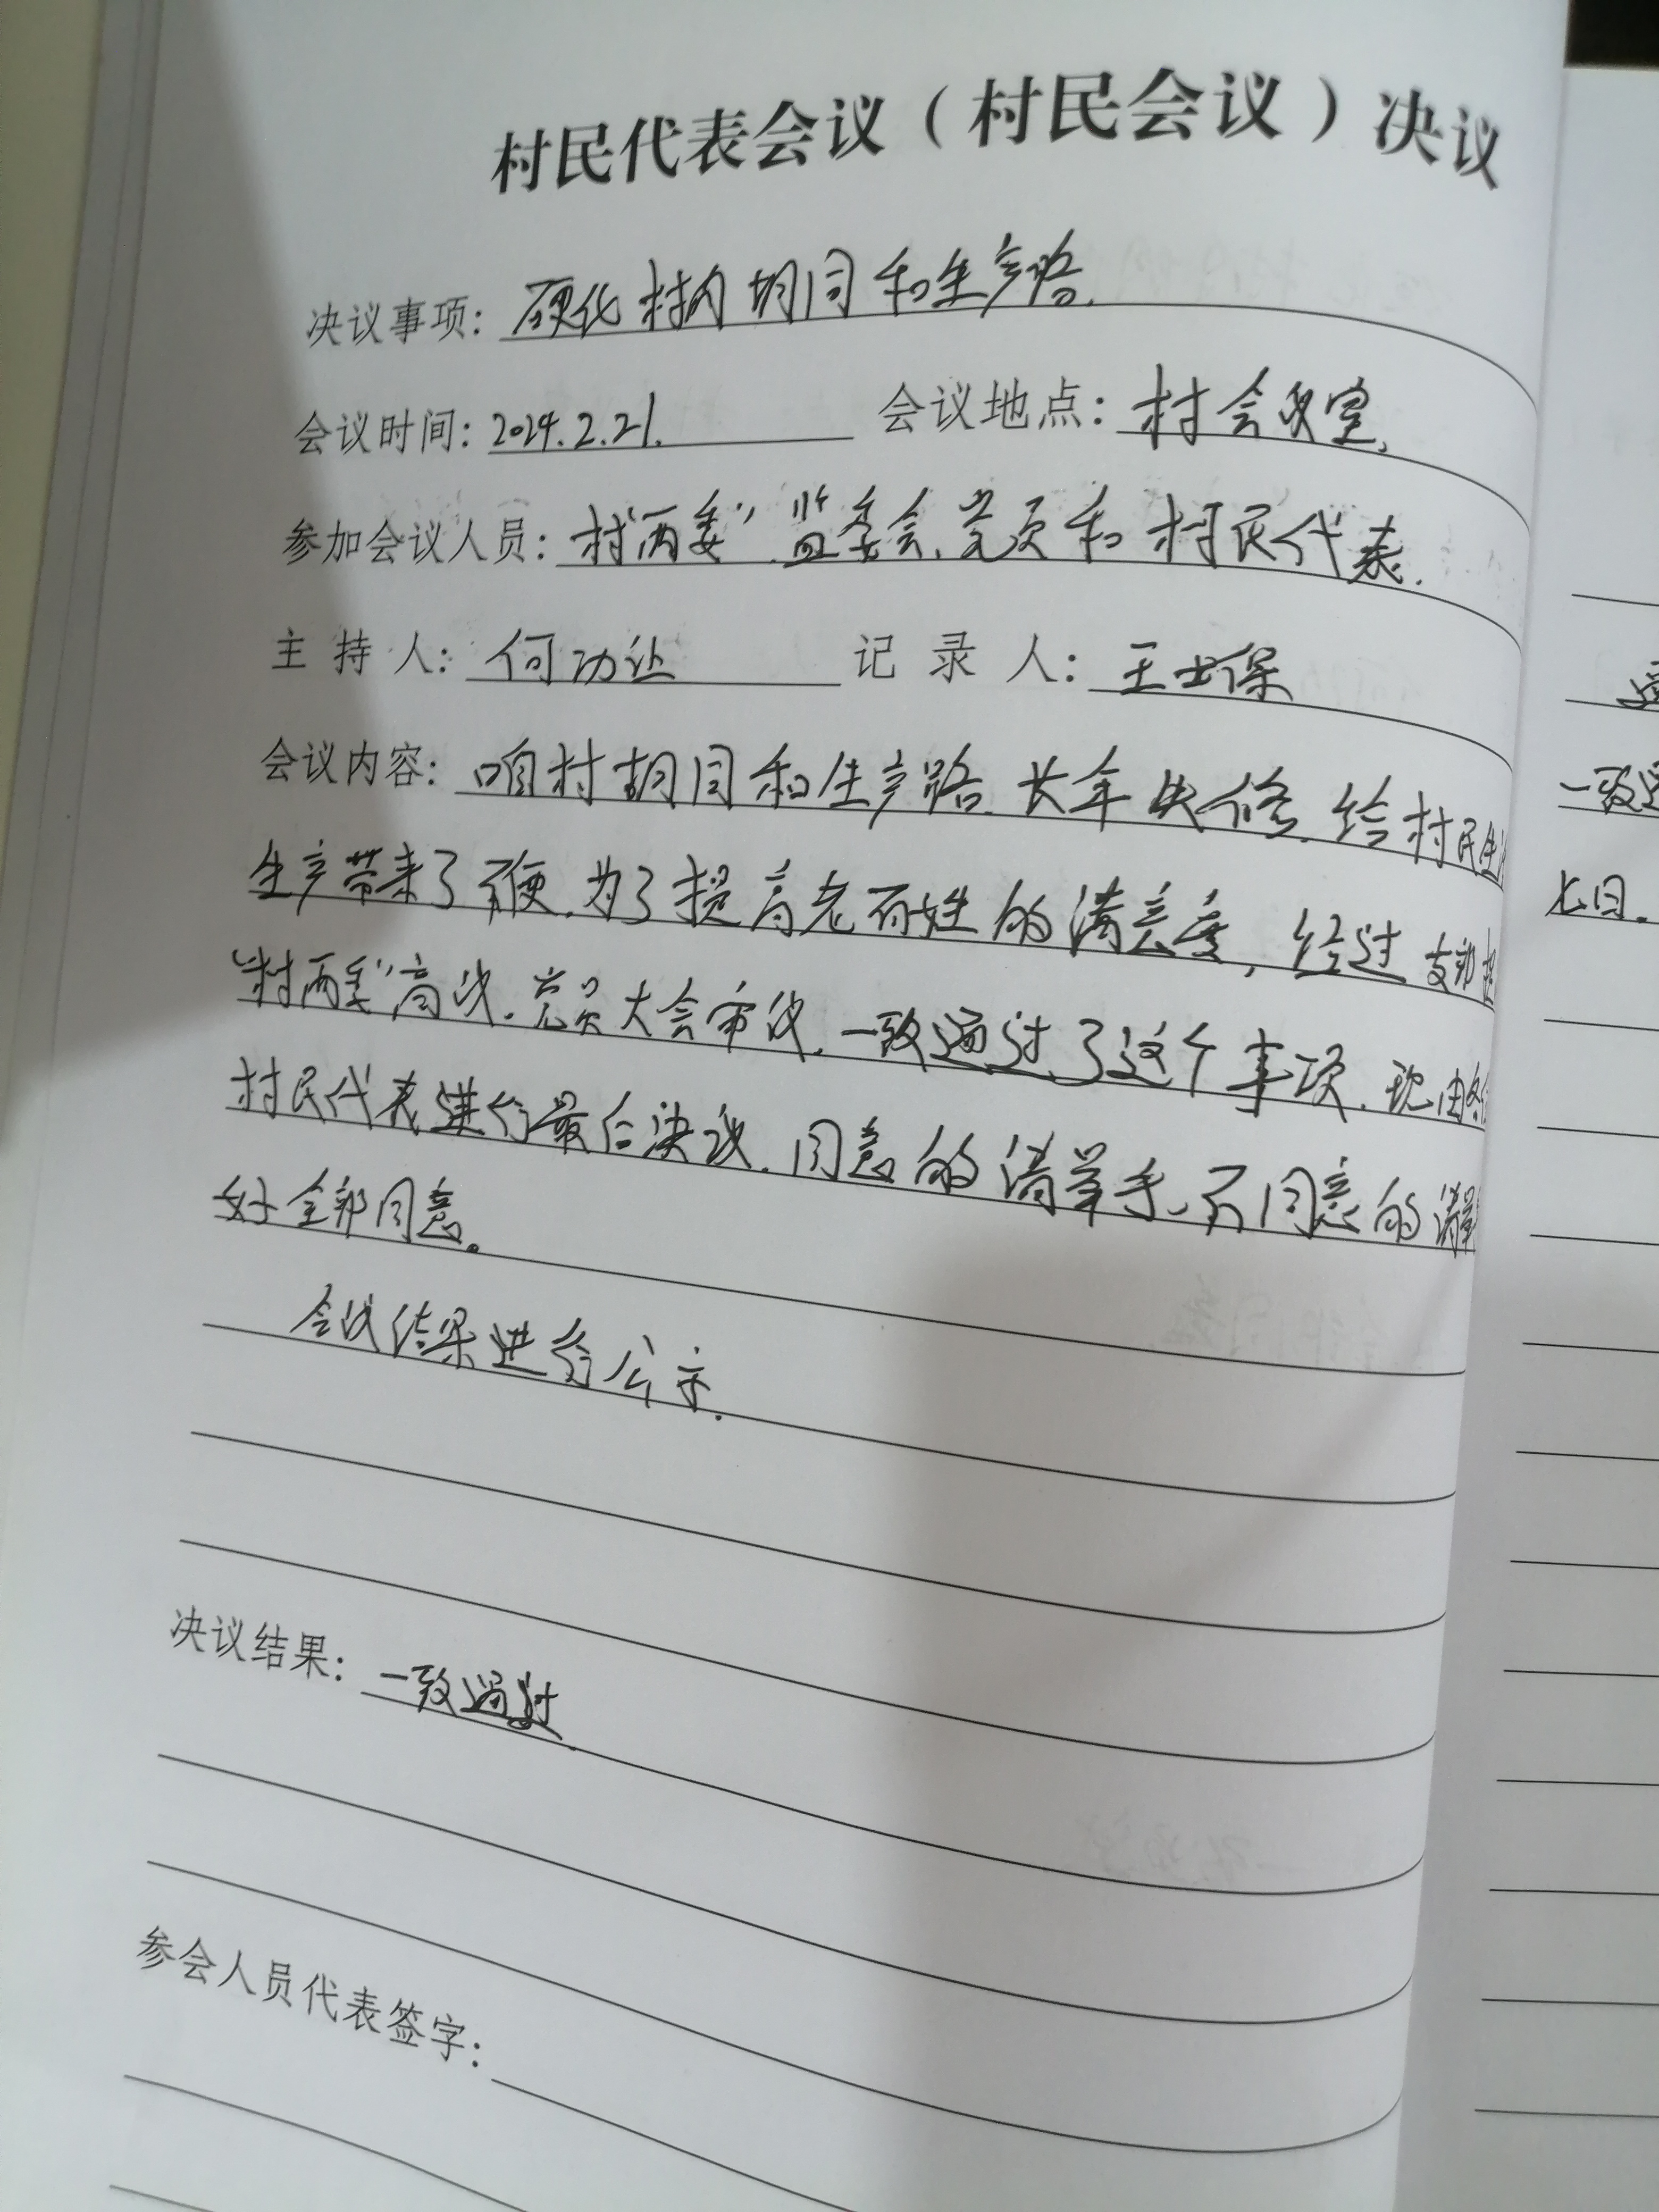 村民代表会议（村民会议）决议
决议事项：硬化村内胡同和生产路.
会议时间：2024.2.21. 会议地点：村会议室.
参加会议人员：村“两委”.监委会.党员和村民代表.
主持人：何功让 记录人：王士保
会议内容：咱村胡同和生产路.长年失修.给村民生
生产带来了不便.为了提高老百姓的满意度，经过支部
“村两委”商议.党员大会审议.一致通过了这个事项.现由各
村民代表进行最后决议.同意的请举手.不同意的请举
好全部同意。
会议结果进行公示.
决议结果：一致通过.
参会人员代表签字：
一致通
七日.